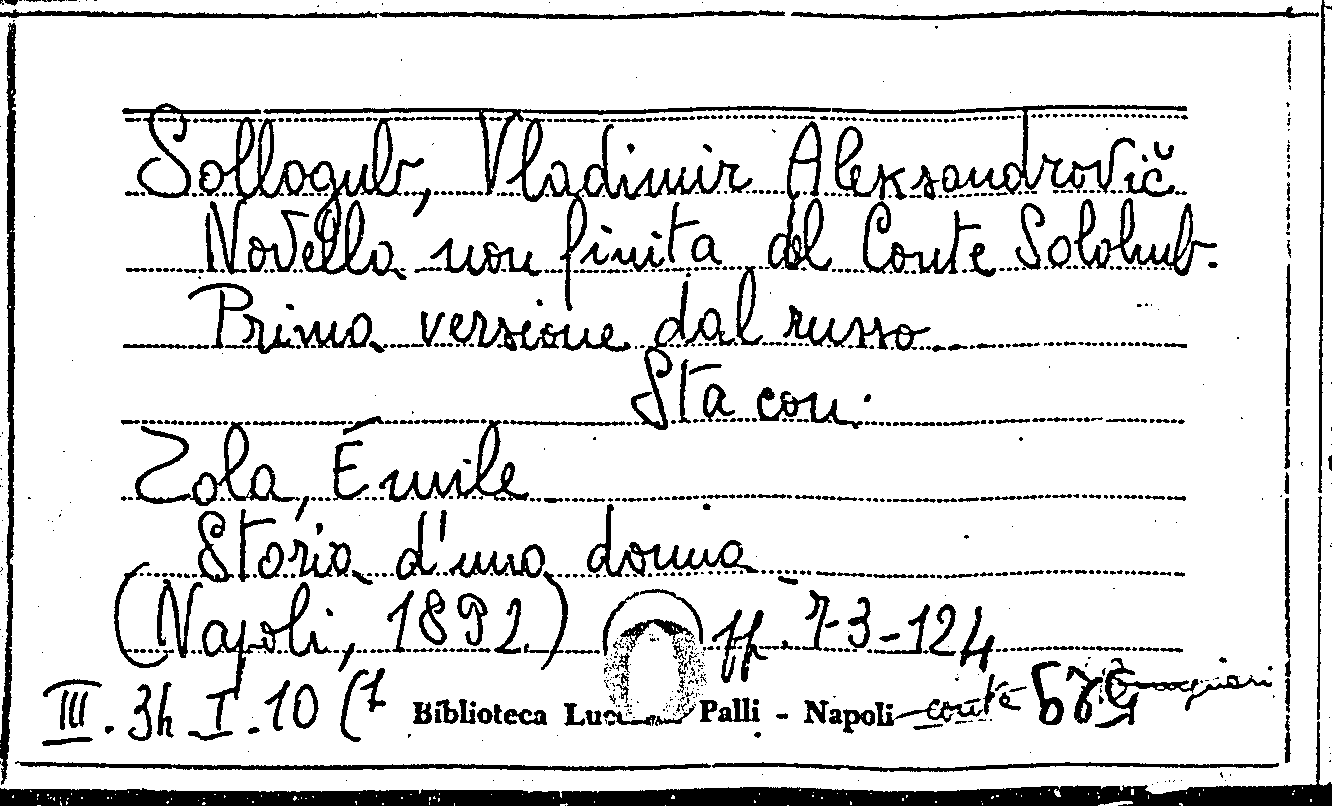 Sollogub, Vladimir Aleksandrovič
Novella non finita del Conte Solohub.
Prima versione dal russo
Sta con:
Zola, Émile
Storia d'una donna
(Napoli, 1892) pp. 73-124
III. 3h I. 10 (1
Biblioteca Palli - Napoli